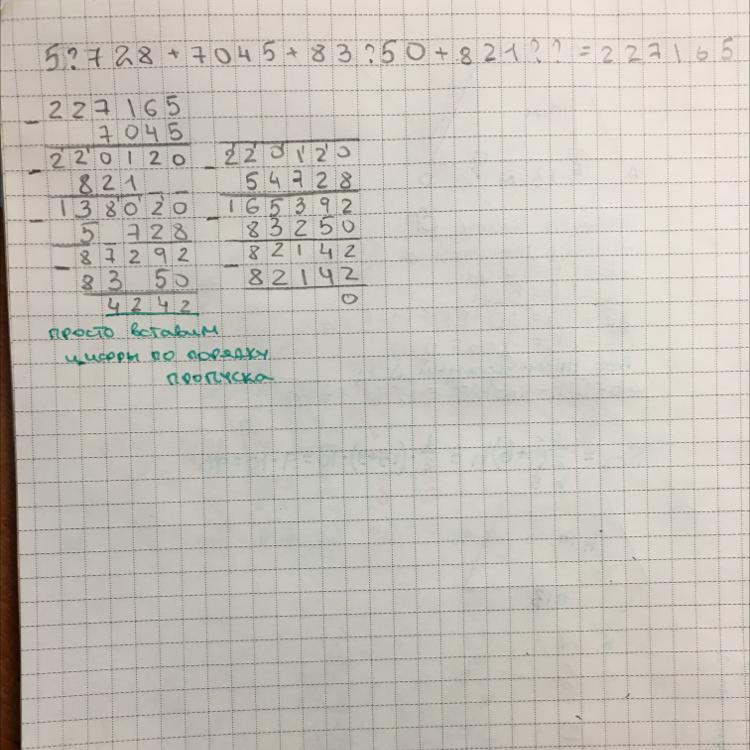 5?728 + 7045 + 83?50 + 821?? = 227165
- 227165
7045
- 220120
821_ _
- 138020
5_728
- 87292
83_50
4242
просто вставим
цифры по порядку
пропуска
- 220120
54728
- 165392
83250
- 82142
82142
0